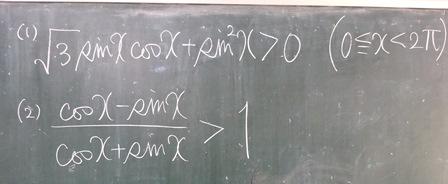 (1) √3 sinx cosx + sin²x > 0 (0 ≦ x < 2π)
(2) (cosx − sinx)/(cosx + sinx) > 1